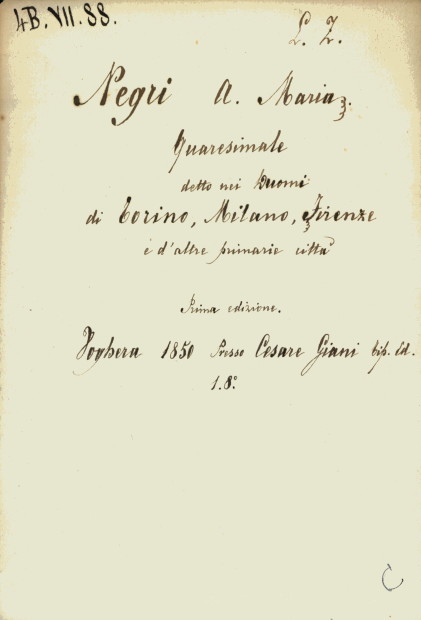 4B.VII.88.
L. Z.
Negri A. Maria.
Quaresimale
detto nei Duomi
di Torino, Milano, Firenze
e d'altre primarie città
Prima edizione.
Voghera 1850 Presso Cesare Giani tip. Ed.
1. 8°.
C